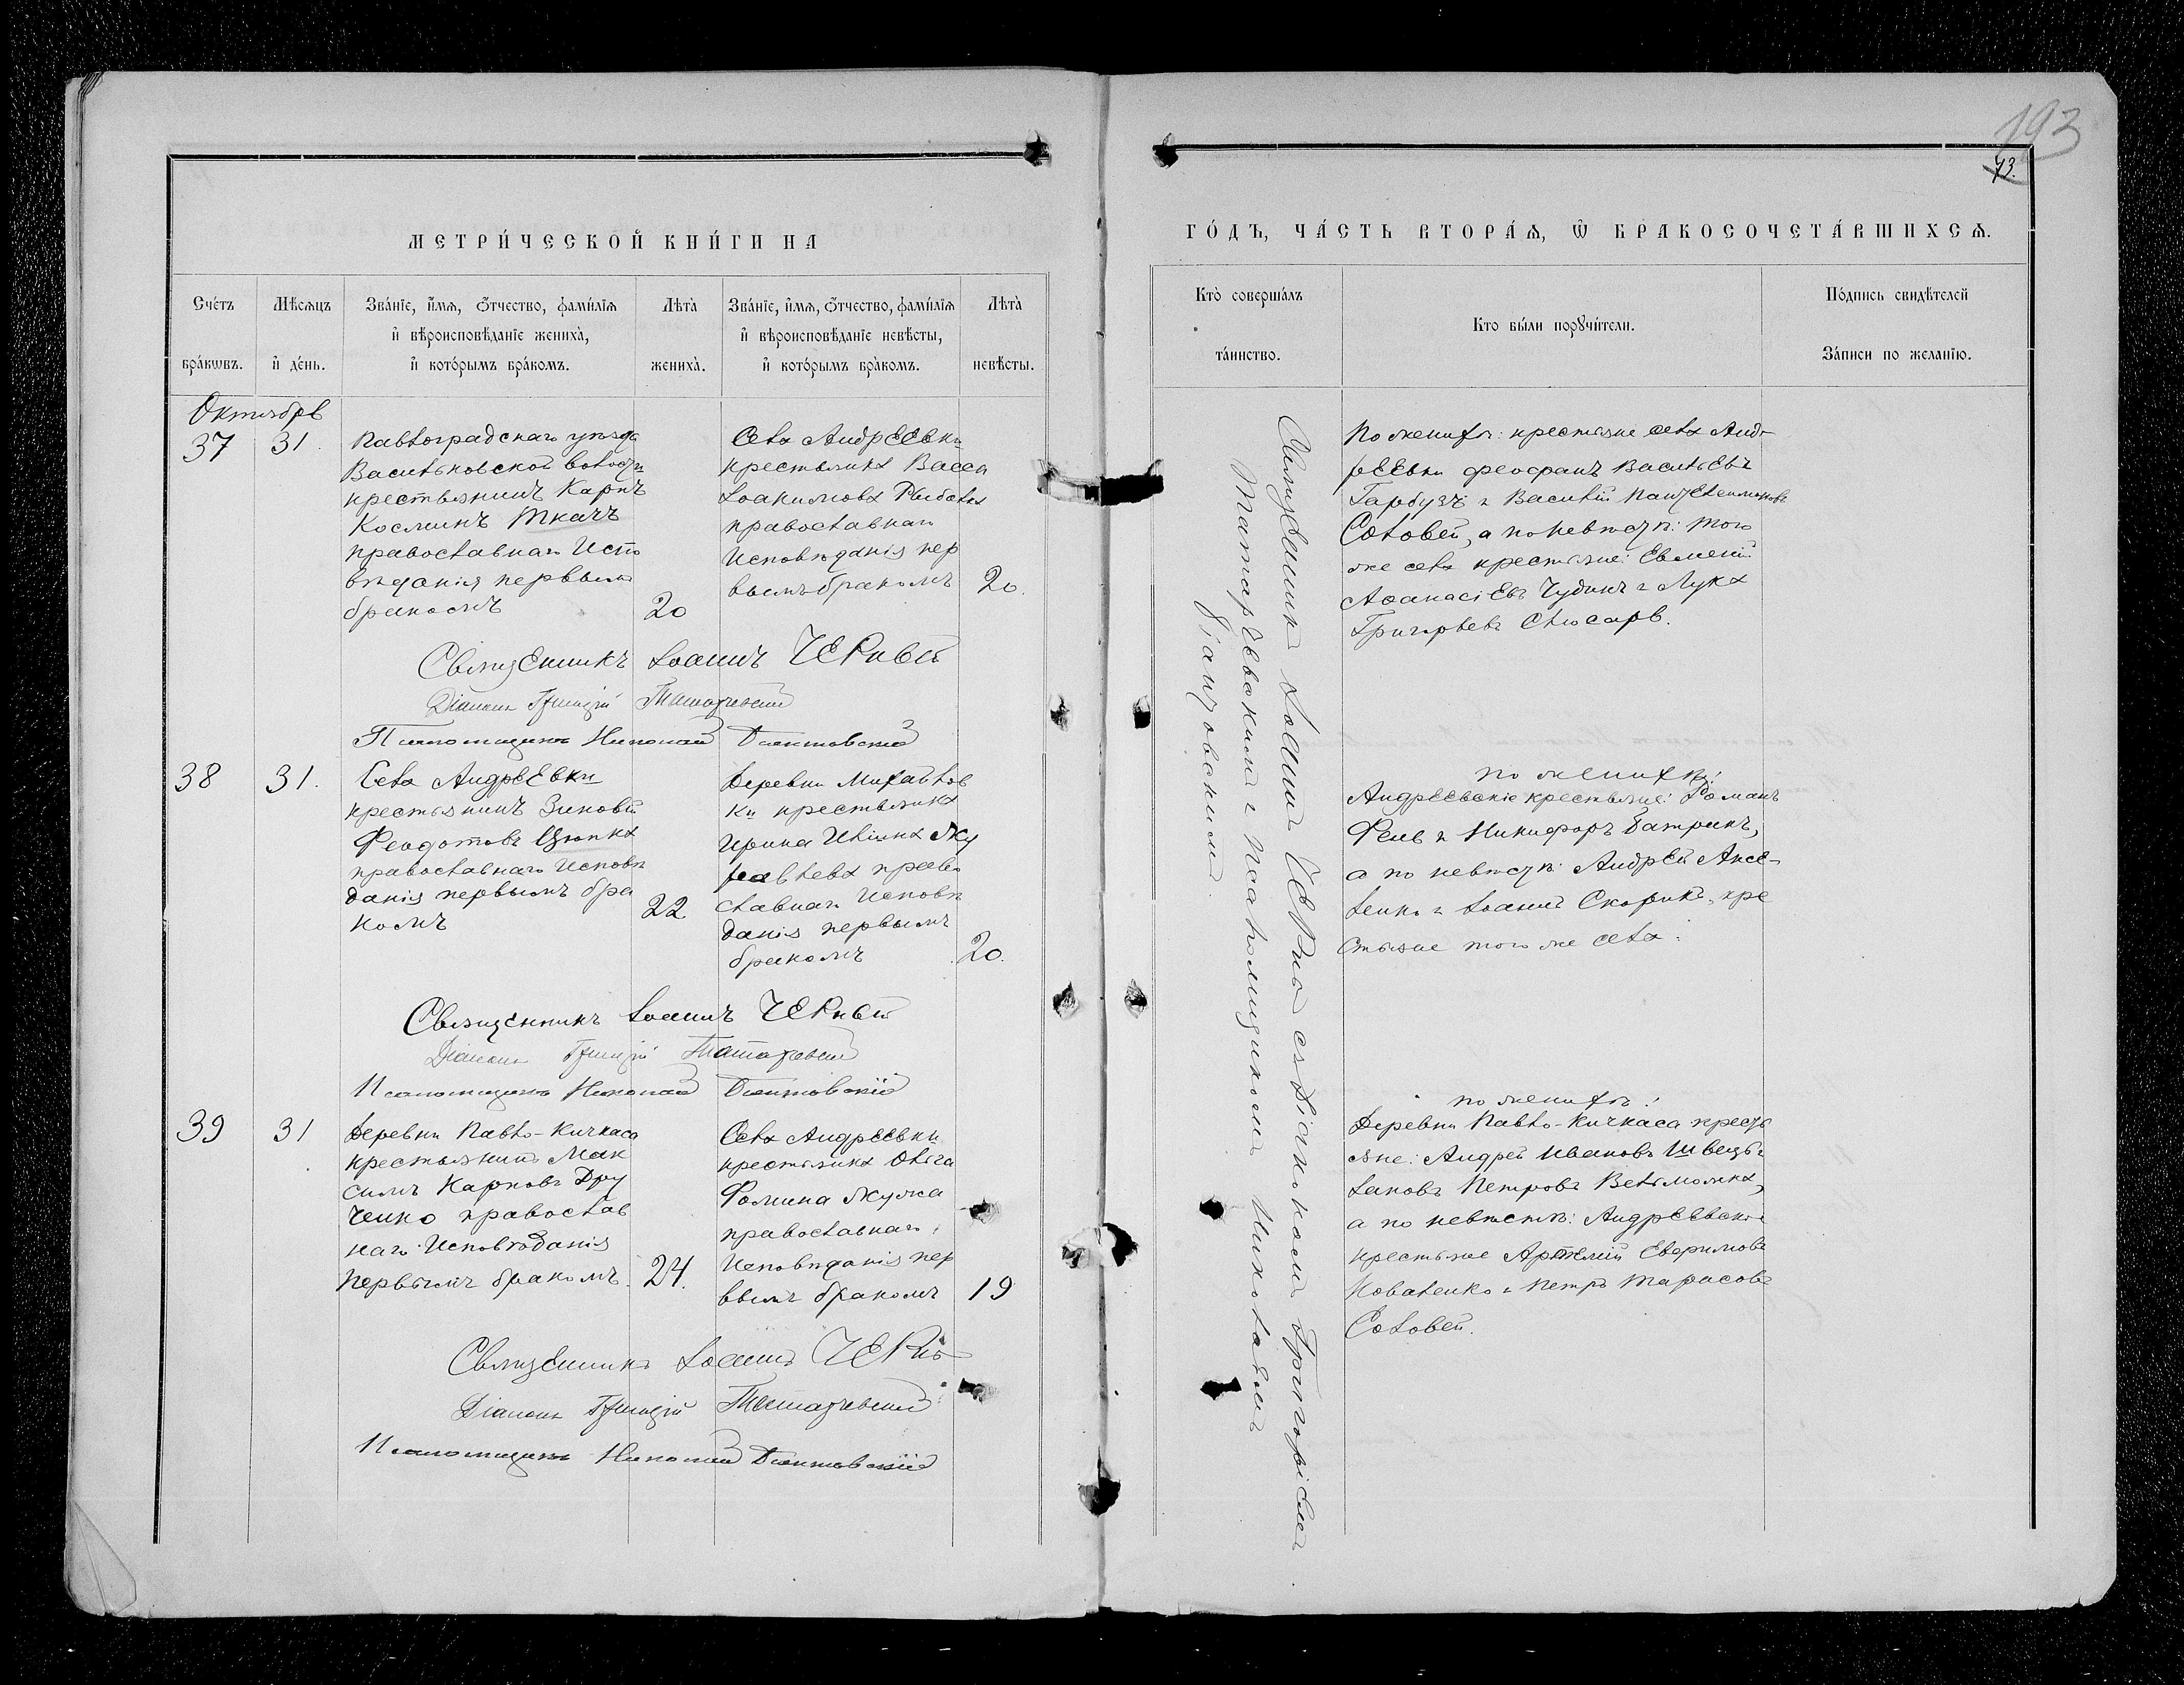 193
73.
МЕТРИ́ЧЕСКОЙ КНИ́ГИ НА
ГО́ДЪ, ЧА́СТЬ ВТОРА́Ѧ, Ѿ БРАКОСОЧЕТА́ВШИХСѦ.
Сче́тъ бра́кѡвъ.
Мѣ́сѧцъ и҆ де́нь.
Зва́нїе, и҆́мѧ, ѻ҆́тчество, фами́лїѧ
и҆ вѣроисповѣ́данїе жениха̀,
и҆ кото́рымъ бра́комъ.
Лѣ́та̀ жениха̀.
Зва́нїе, и҆́мѧ, ѻ҆́тчество, фами́лїѧ
и҆ вѣроисповѣ́данїе невѣ́сты,
и҆ кото́рымъ бра́комъ.
Лѣ́та̀ невѣ́сты.
Кто̀ соверша́лъ
та́инство.
Кто бы́ли порꙋчи́тели.
По́дпись свидѣ́телей
За́писи по жела́нїю.
Октябрь
37
31.
Павлоградскаго уѣзда
Васильковской волости
крестьянинъ Карпъ
Косминъ Ткачъ
православнаго Испо
вѣданія первымъ
бракомъ
20
Села Андреевки
крестьянка Васса
Іоакимова Рыбалка
православнаго
Исповѣданія пер
вымъ бракомъ
20.
Священникъ Іоаннъ Черный
Діаконъ Григорій Татаревскій
Псаломщикъ Николай
38
31.
Села Андреевки
крестьянинъ Зиновій
Феодотовъ Цюпка
православнаго Исповѣ
данія первымъ бра
комъ
22.
Деревни Михайлов
ки крестьянка
Ирина Ильина Жу
равлева право
славнаго Исповѣ
данія первымъ
бракомъ
20.
Священникъ Іоаннъ Черный
Діаконъ Григорій Татаревскій
Псаломщикъ Николай
39
31
Деревни Павло-Кичкаса
крестьянинъ Мак
симъ Карповъ Дру
ченко православ
наго Исповѣданія
первымъ бракомъ.
24.
Села Андреевки
крестьянка Ольга
Фомина
православнаго
Исповѣданія пер
вымъ бракомъ
19
Священникъ Іоаннъ Черный
Діаконъ Григорій Татаревскій
Псаломщикъ Николай
Священникъ Іоаннъ Черный съ діакономъ Григоріемъ
Татаревскимъ и псаломщикомъ Николаемъ
По женихѣ: крестьяне села Анд-
реевки Феофанъ Васильевъ
Гарбузъ и Василій Пантелеимоновъ
Соловей, а по невѣстѣ: того
же села крестьяне: Евмений
Аѳанасіевъ Чудинъ и Лука
Григорьевъ Слюсарь.
по женихѣ:
Андреевскіе крестьяне: Романъ
и Никифоръ
а по невѣстѣ: Андрей Аксе-
ленко и Іоаннъ Скорикъ, кре
стьяне того же села.
по женихѣ:
Деревни Павло-Кичкаса кресть
яне: Андрей Ивановъ Швецъ и
Іаковъ Петровъ Вельможка,
а по невѣстѣ: Андреевскіе
крестьяне Артемій Евфимовъ
Коваленко и Петръ Тарасовъ
Соловей.